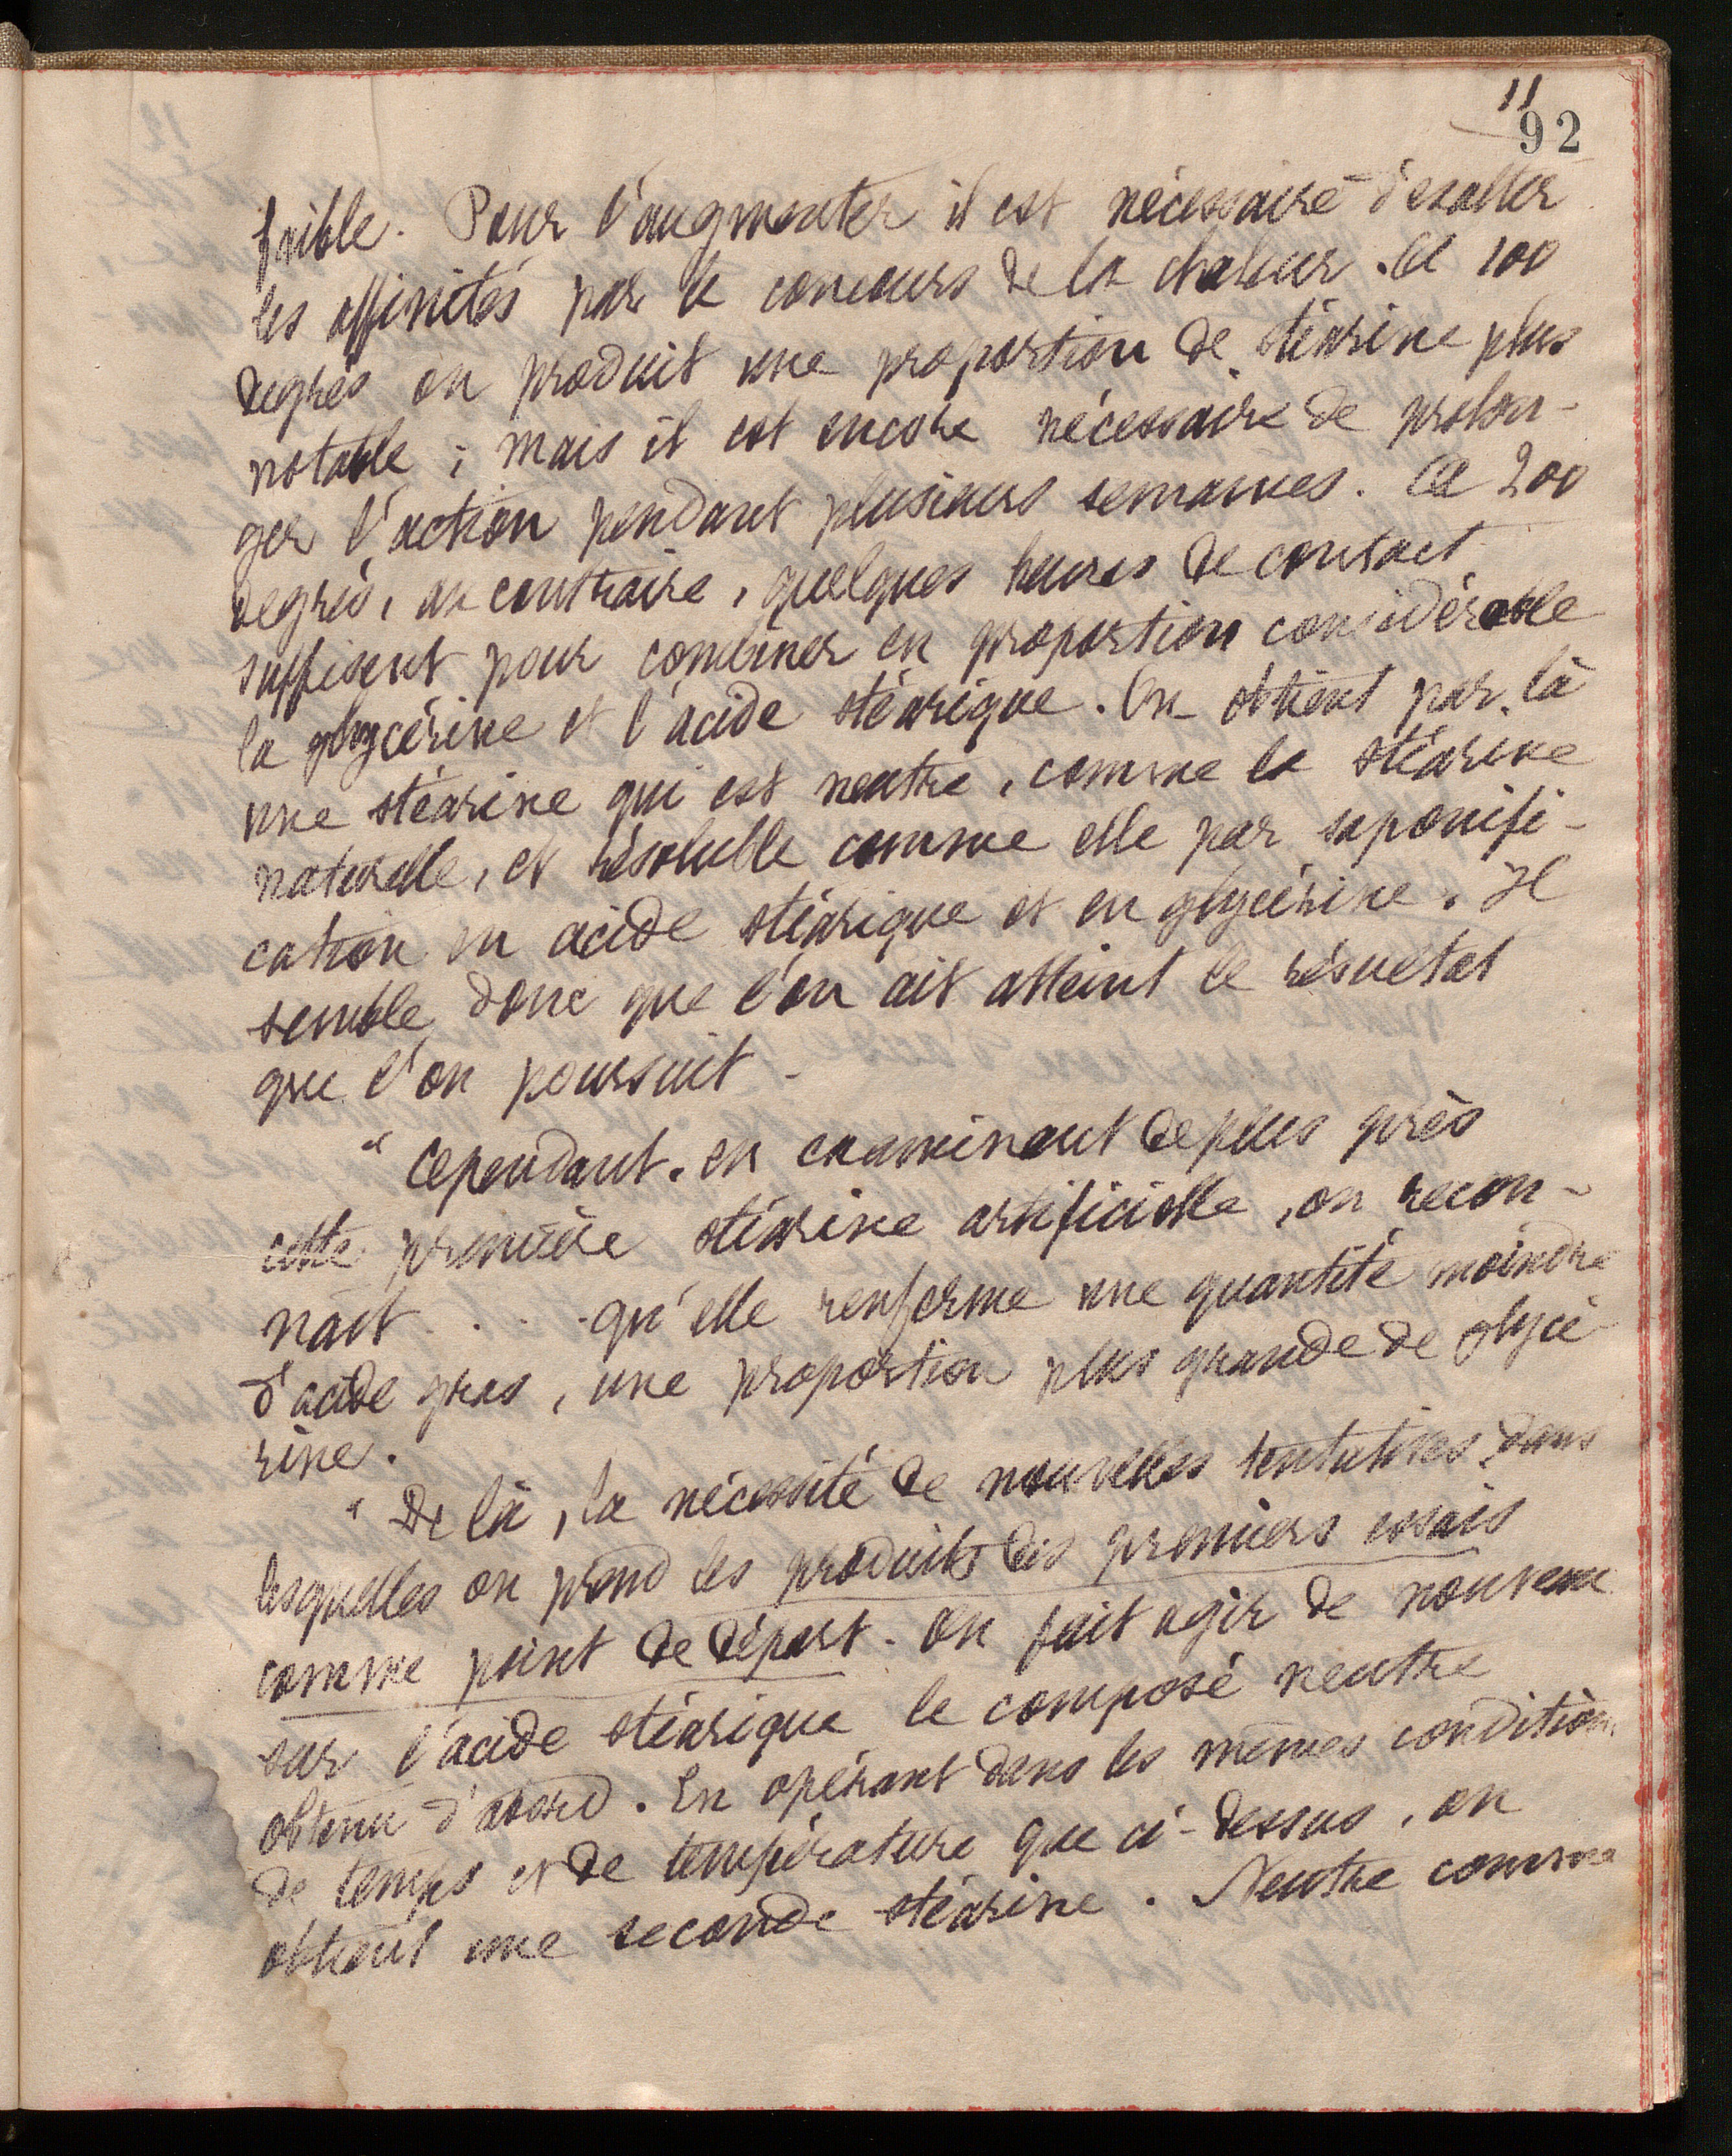 11
92
faible. Pour l'augmenter il est nécessaire d'exalter
les affinités par le concours de la chaleur. A 100
degrés on produit une proportion de stéarine plus
notable ; mais il est encore nécessaire de prolon-
ger l'action pendant plusieurs semaines. A 200
degrés, au contraire, quelques heures de contact
suffisent pour combiner en proportion considérable
la glycérine et l'acide stéarique. On obtient par là
une stéarine qui est neutre, comme la stéarine
naturelle, et résoluble comme elle par saponifi-
cation en acide stéarique et en glycérine. Il
semble donc que l'on ait atteint le résultat
que l'on poursuit.
" Cependant. en examinant de plus près
cette première stéarine artificielle, on recon-
nait . . . . qu'elle renferme une quantité moindre
d'acide gras, une proportion plus grande de glycé-
rine.
" De là, la nécessité de nouvelles tentatives dans
lesquelles on prend les produits des premiers essais
comme point de départ. On fait agir de nouveau
sur l'acide stéarique le composé neutre
obtenu d'abord. En opérant dans les mêmes conditions
de temps et de température que ci-dessus, on
obtient une seconde stéarine. Neutre comme